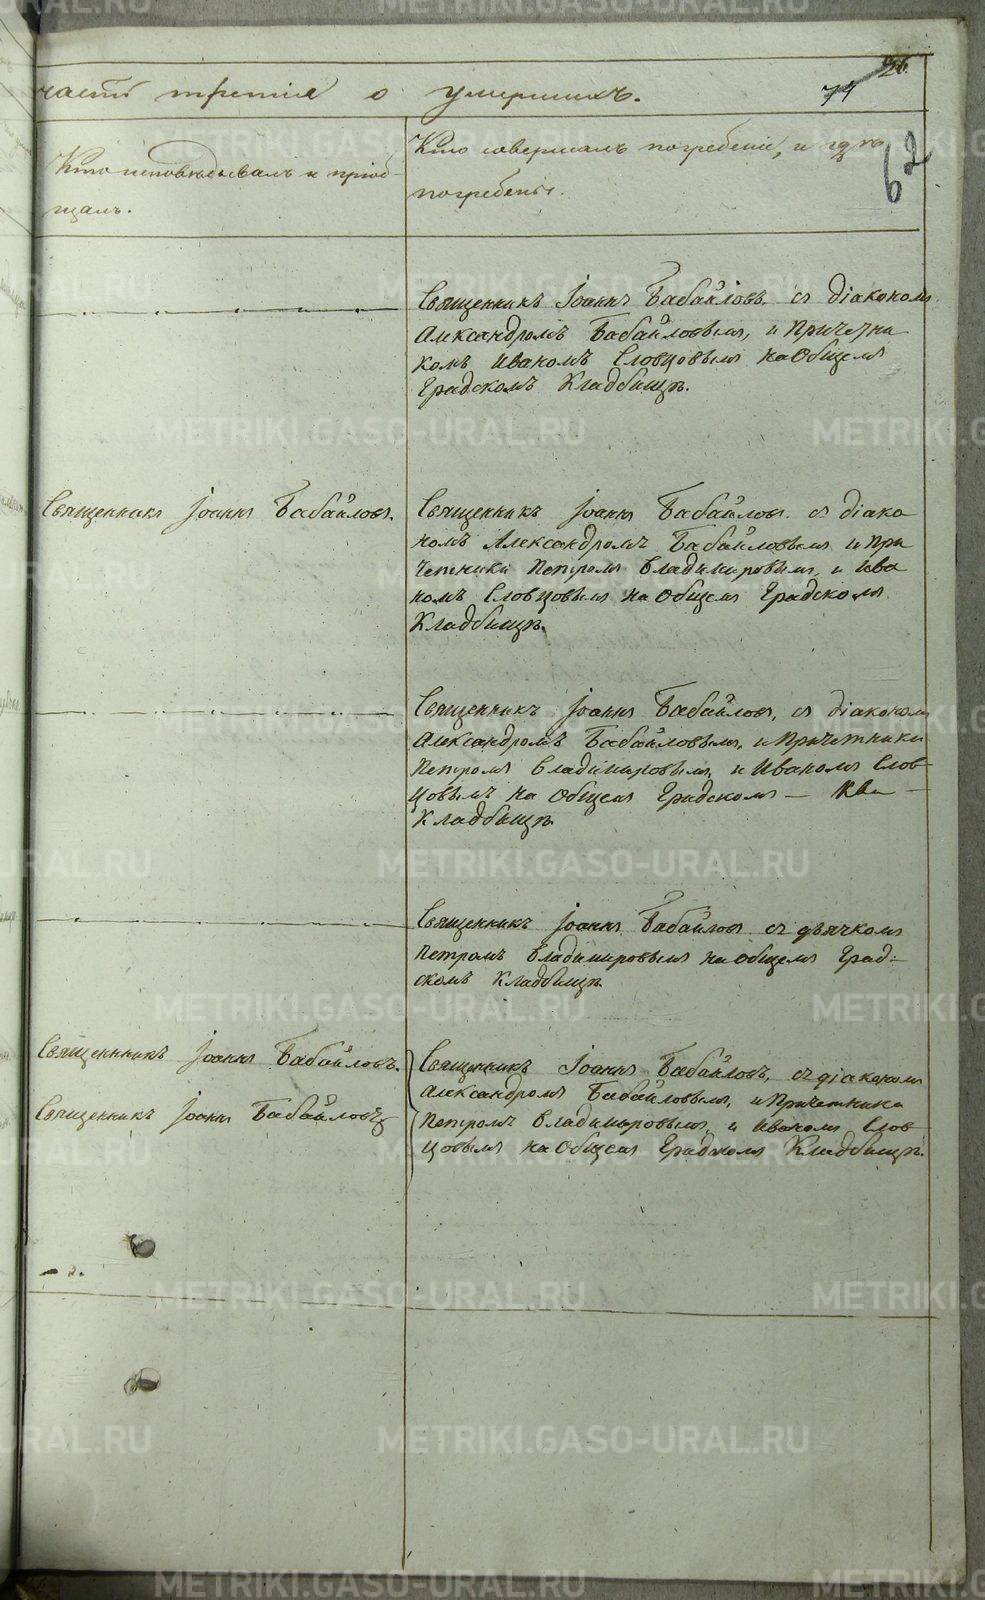 26
74
часть третія о умершихъ.
62
Кто исповѣдывалъ и пріоб-
щалъ.
Кто совершалъ погребеніе, и гдѣ
погребены.
Священникъ Іоаннъ Бабайловъ съ діакономъ
Александромъ Бабайловымъ, и Причетни
комъ Иваномъ Словцовымъ на Общемъ
Градскомъ Кладбищѣ.
Священникъ Іоаннъ Бабайловъ.
Священникъ Іоаннъ Бабайловъ съ діако
номъ Александромъ Бабайловымъ и При
четники Петромъ Владимировымъ, и Ива
номъ Словцовымъ на Общемъ Градскомъ
Кладбищѣ.
Священникъ Іоаннъ Бабайловъ, съ діакономъ
Александромъ Бабайловымъ, и Причетники
Петромъ Владимировымъ, и Иваномъ Слов-
цовымъ на Общемъ Градскомъ —
Кладбищѣ.
Священникъ Іоаннъ Бабайловъ съ дьячкомъ
Петромъ Владимировымъ на Общемъ Град=
скомъ Кладбищѣ.
Священникъ Іоаннъ Бабайловъ.
Священникъ Іоаннъ Бабайловъ
Священникъ Іоаннъ Бабайловъ, съ діакономъ
Александромъ Бабайловымъ, и Причетники
Петромъ Владимировымъ, и Иваномъ Слов
цовымъ на Общемъ Градскомъ Кладбищѣ.
METRIKI.GASO-URAL.RU